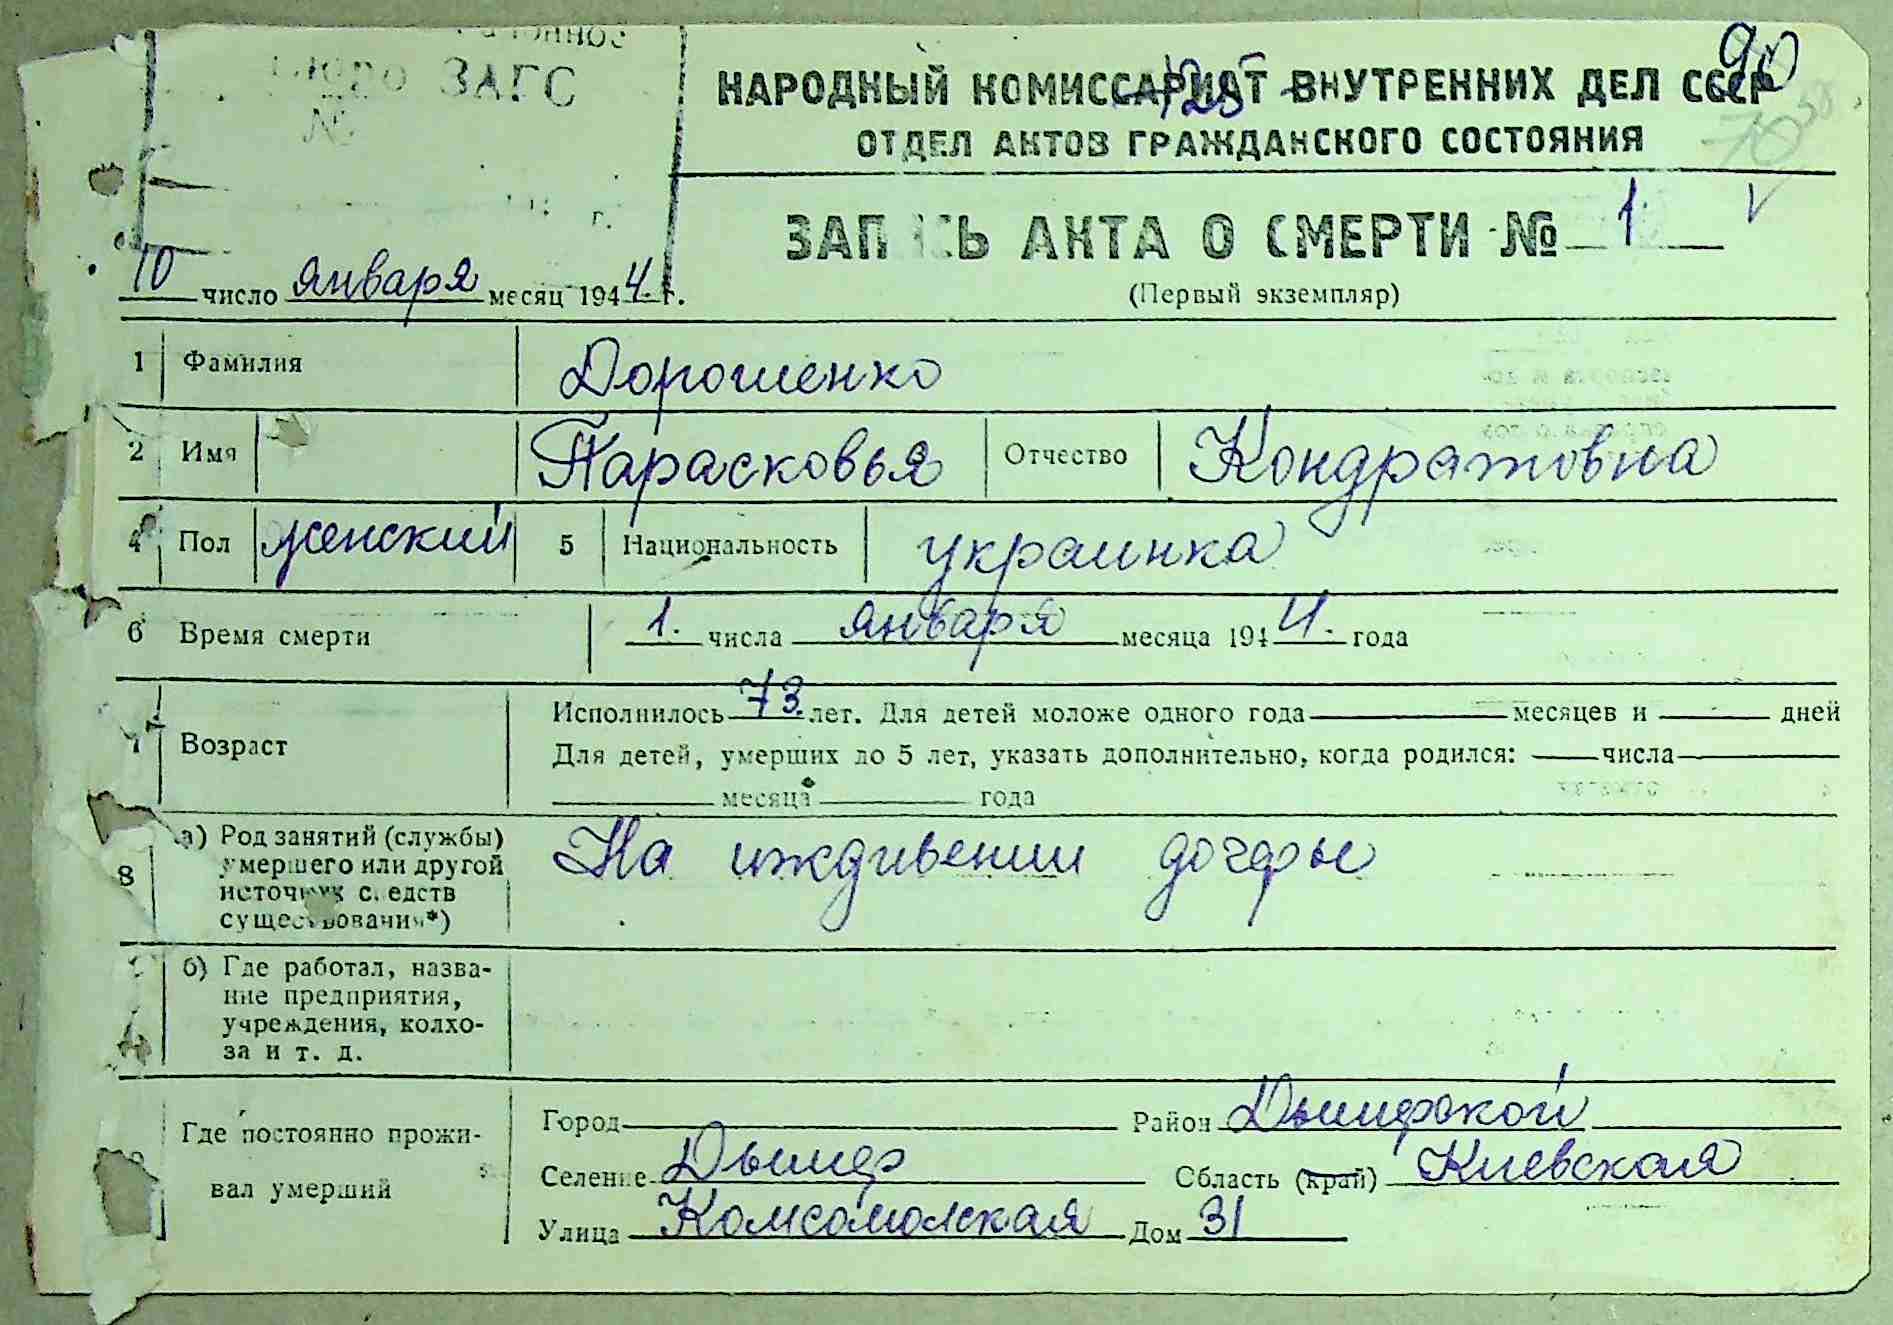 бюро ЗАГС
№
г.
90
НАРОДНЫЙ КОМИССАРИАТ ВНУТРЕННИХ ДЕЛ СССР
125
ОТДЕЛ АКТОВ ГРАЖДАНСКОГО СОСТОЯНИЯ
ЗАПИСЬ АКТА О СМЕРТИ № 1.
10 число января месяц 1944. г.
(Первый экземпляр)
1 Фамилия Дорошенко
2 Имя Парасковья Отчество Кондратовна
4 Пол женский 5 Национальность украинка
6 Время смерти 1. числа января месяца 1944. года
7 Возраст Исполнилось 73. лет. Для детей моложе одного года месяцев и дней
Для детей, умерших до 5 лет, указать дополнительно, когда родился: числа
месяца года
8 а) Род занятий (службы) На иждивении дочеры
умершего или другой
источник средств
существования*)
б) Где работал, назва-
ние предприятия,
учреждения, колхо-
за и т. д.
Где постоянно прожи-
вал умерший
Город Район Дымерской
Селение Дымер Область (край) Киевская
Улица Комсомолская Дом 31